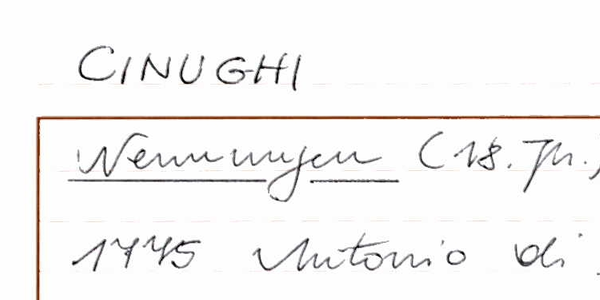 CINUGHI
Nennungen (18. Jh.)
1775 Antonio di